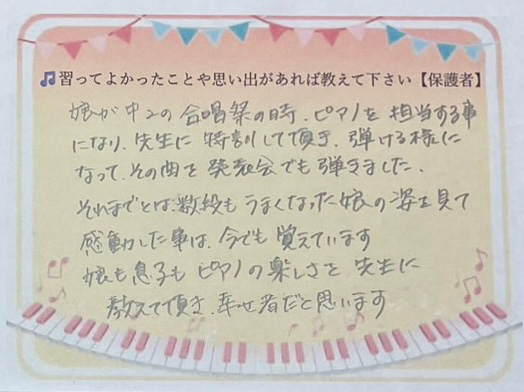 習ってよかったことや思い出があれば教えて下さい【保護者】
娘が中2の合唱祭の時、ピアノを担当する事
になり、先生に特訓して頂き、弾ける様に
なって、その曲を発表会でも弾きました。
それまでとは、数段もうまくなった娘の姿を見て
感動した事は、今でも覚えています
娘も息子もピアノの楽しさを先生に
教えて頂き、幸せ者だと思います